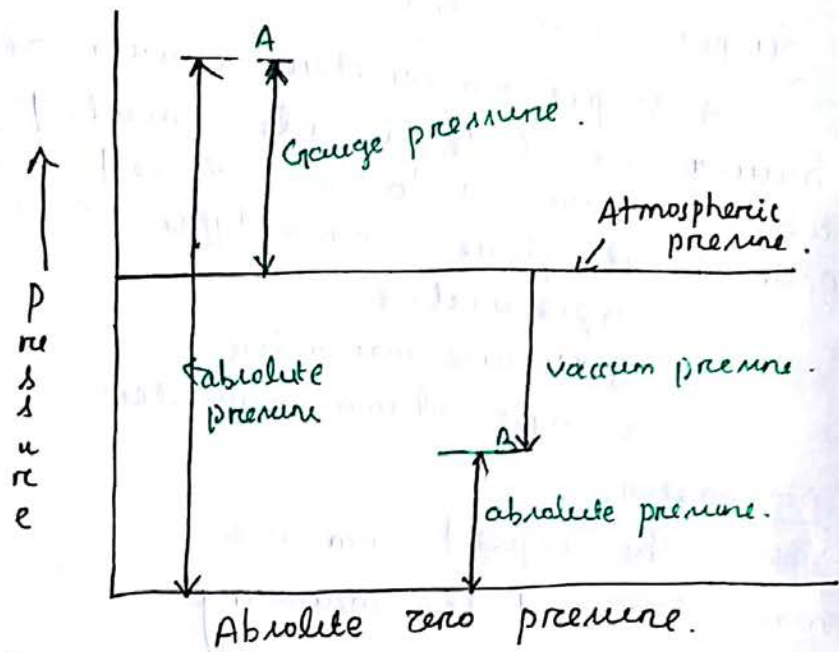 A
Gauge pressure.
Atmospheric
pressure.
Pressure
absolute
pressure
vaccum pressure.
B
absolute pressure.
Absolite zero pressure.